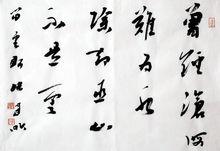 曾經滄海
難為水
除却巫山
不是雲